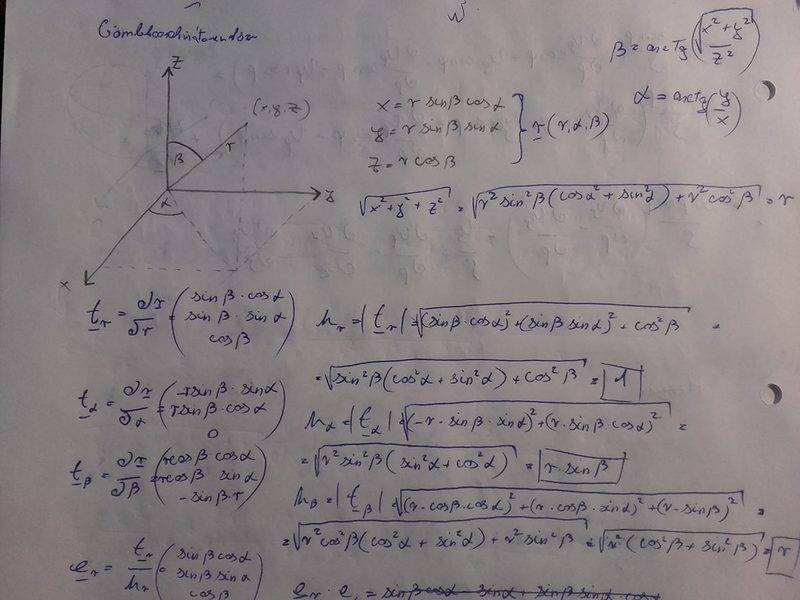 Gömbkoordinátarendszer
β = arc tg √(x² + y² / z²)
α = arctg (y/x)
z
(x, y, z)
β r
α
y
x
x = r sinβ cosα
y = r sinβ sinα } r (r, α, β)
z = r cosβ
√x² + y² + z² = √r² sin²β (cos²α + sin²α) + r² cos²β = r
t_r = ∂r/∂r = (sinβ · cosα
sinβ · sinα
cosβ)
h_r = |t_r| = √(sinβ · cosα)² + (sinβ sinα)² + cos²β =
= √sin²β (cos²α + sin²α) + cos²β = 1
t_α = ∂r/∂α = (-r sinβ · sinα
r sinβ · cosα
0)
h_α = |t_α| = √(-r · sinβ · sinα)² + (r · sinβ cosα)² =
= √r² sin²β (sin²α + cos²α) = r · sinβ
t_β = ∂r/∂β = (r cosβ cosα
r cosβ sinα
- sinβ · r)
h_β = |t_β| = √(r · cosβ · cosα)² + (r · cosβ · sinα)² + (r - sinβ)² =
= √r² cos²β (cos²α + sin²α) + r² sin²β = √r² (cos²β + sin²β) = r
e_r = t_r/h_r = (sinβ cosα
sinβ sinα
cosβ)